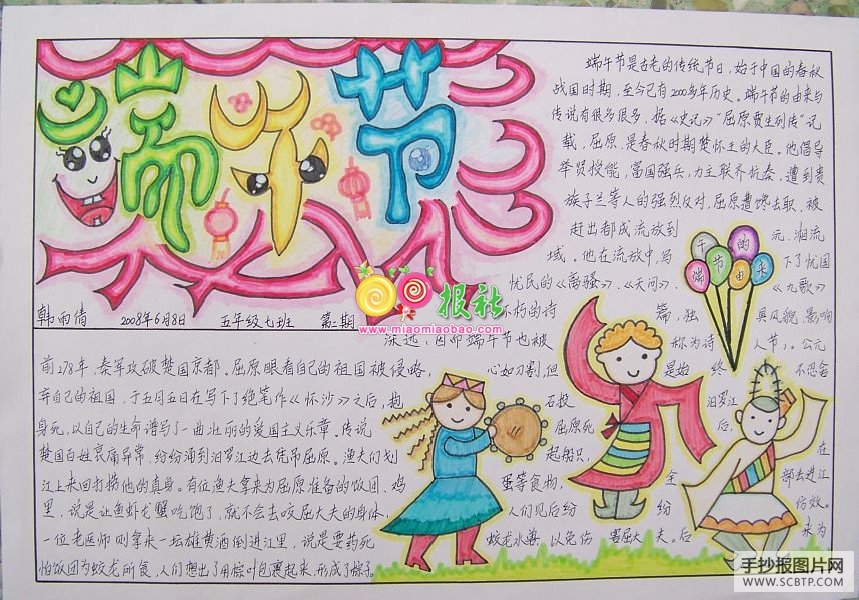 端午节
端午节的由来
韩雨倩 2008年6月8日 五年级七班 第二期
端午节是古老的传统节日,始于中国的春秋
战国时期,至今已有2000多年历史。端午节的由来与
传说有很多很多,据《史记》"屈原贾生列传"记
载,屈原,是春秋时期楚怀王的大臣。他倡导
举贤授能,富国强兵,力主联齐抗秦,遭到贵
族子兰等人的强烈反对,屈原遭馋去职,被
赶出都成流放到 元、湘流
域,他在流放中,写 下了忧国
忧民的《离骚》、《天问》、 《九歌》
不朽的诗 篇,独 具风貌,影响
深远,因而端午节也被 称为诗 人节)。公元
前278年,秦军攻破楚国京都。屈原眼看自己的祖国被侵略, 心如刀割,但 是始 终 不忍舍
弃自己的祖国,于五月五日在写下了绝笔作《怀沙》之后,抱 石投 汨罗江
身死,以自己的生命谱写了一曲壮丽的爱国主义乐章。传说 屈原死 后,
楚国百姓哀痛异常,纷纷涌到汨罗江边去凭吊屈原。渔夫们划 起船只, 在
江上来回打捞他的真身。有位渔夫拿来为屈原准备的饭团、鸡 蛋等食物, 全 部丢进江
里,说是让鱼虾龙蟹吃饱了,就不会去咬屈大夫的身体, 人们见后纷 纷 仿效。
一位老医师则拿来一坛雄黄酒倒进江里,说是要药死 蛟龙水兽,以免伤 害屈大 夫。后 来为
怕饭团为蛟龙所食,人们想出了用棕叶包裹起来,形成了棕子。
报社
www.miaomiaobao.com
手抄报图片网
WWW.SCBTP.COM